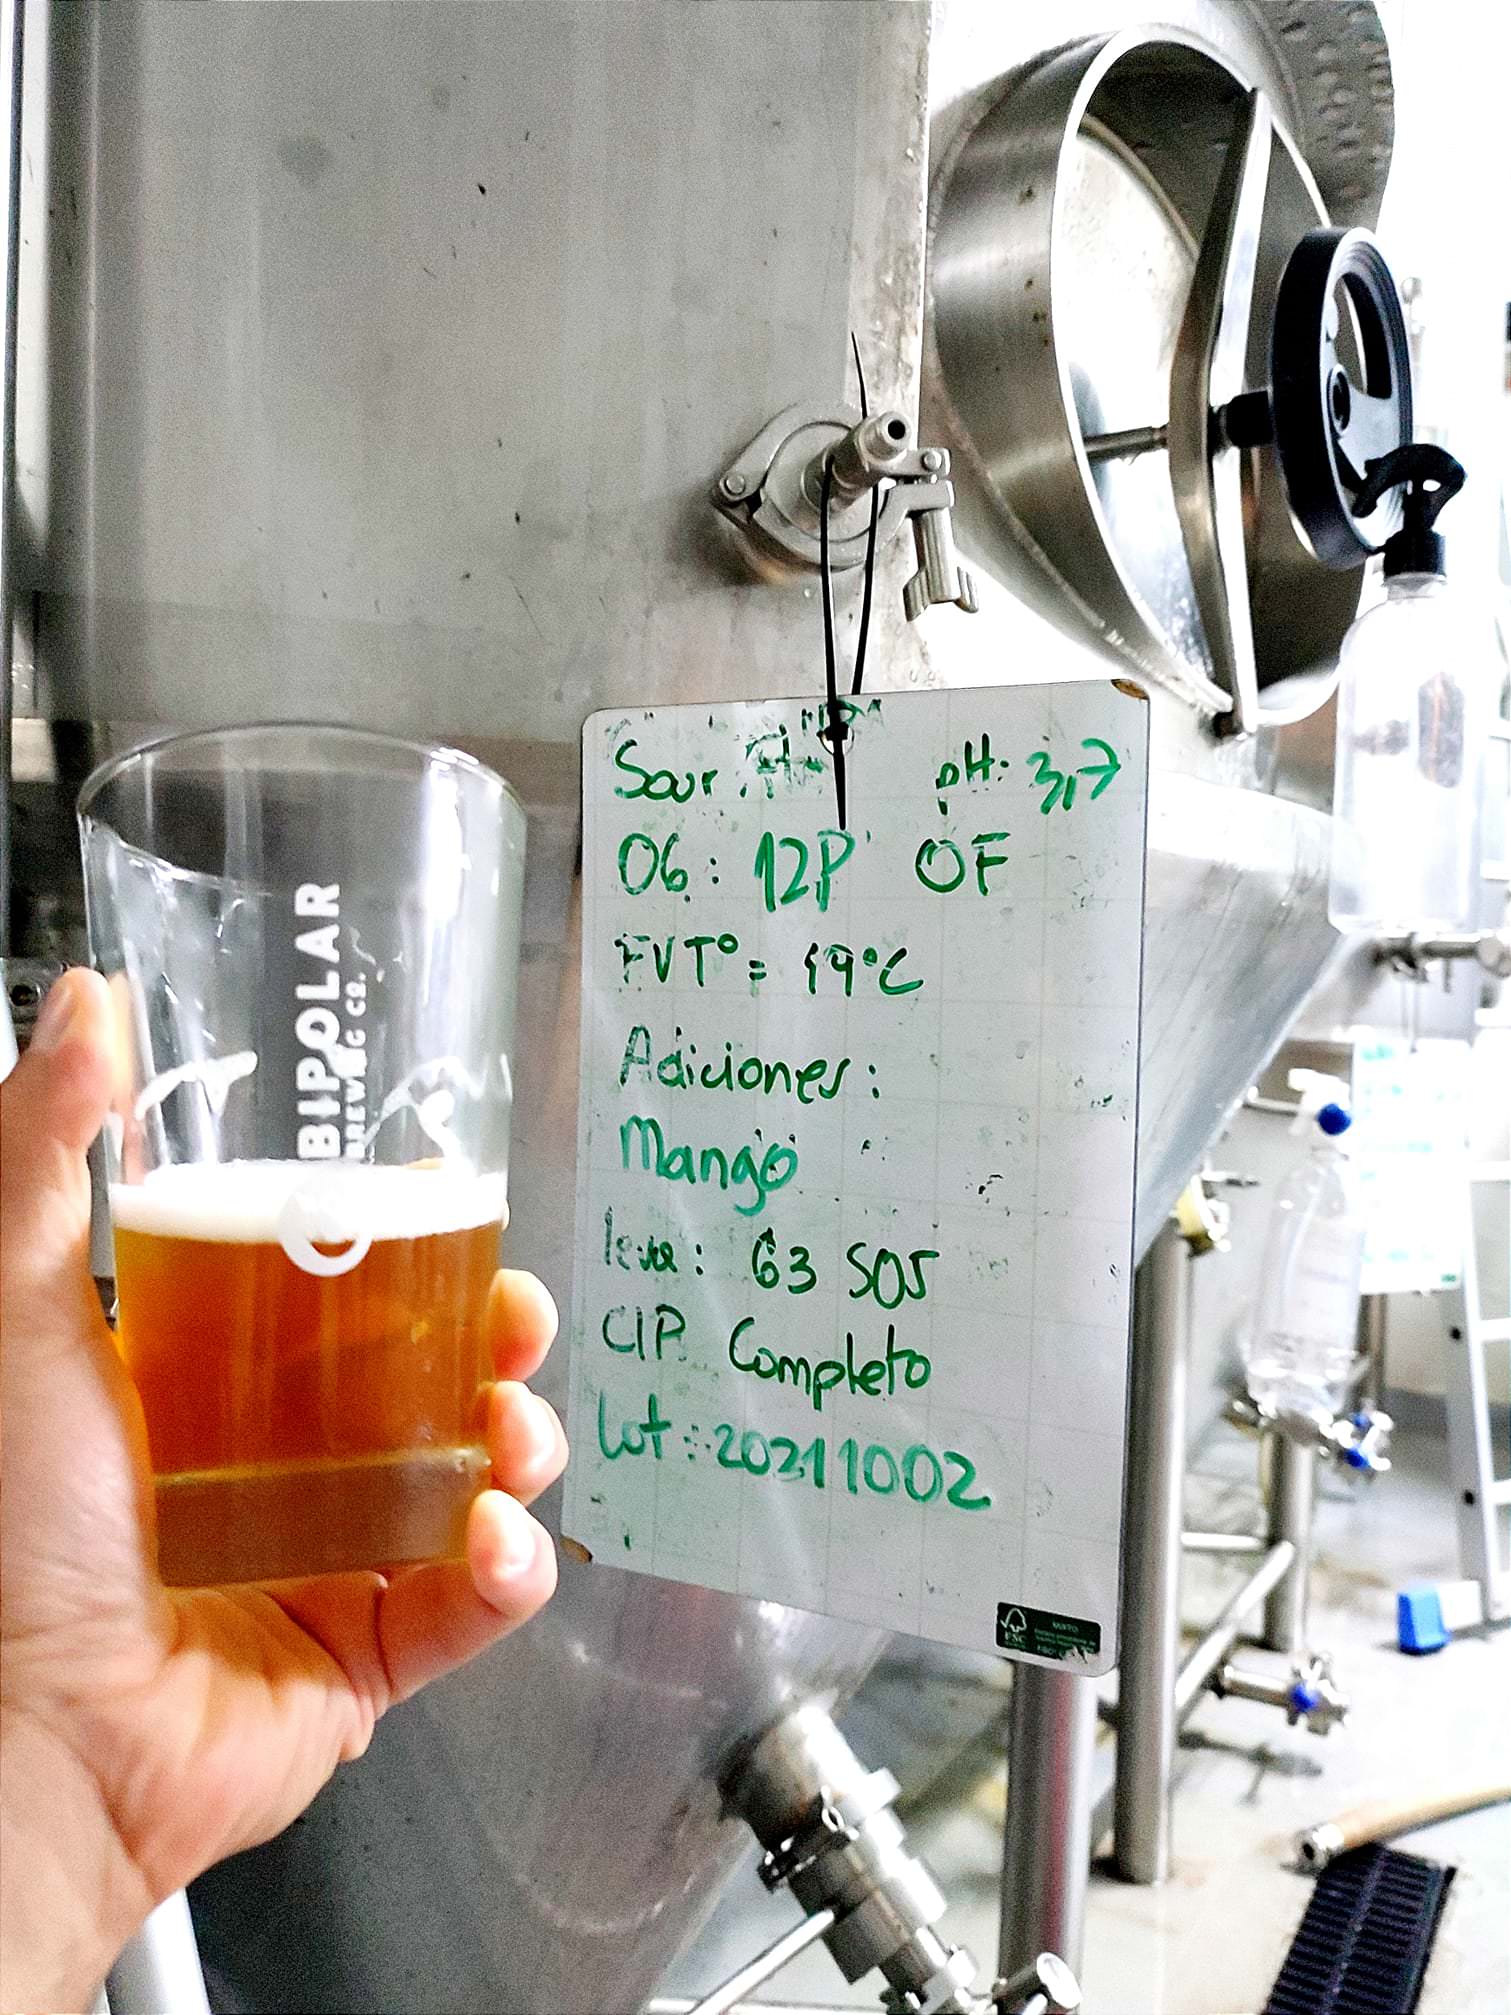 BIPOLAR
BREWING CO.
Sour pH: 3,7
OG: 12P OF
FVTº = 19ºC
Adiciones:
Mango
leva: G3 S05
CIP Completo
Lot: 20211002
FSC
MIXTO